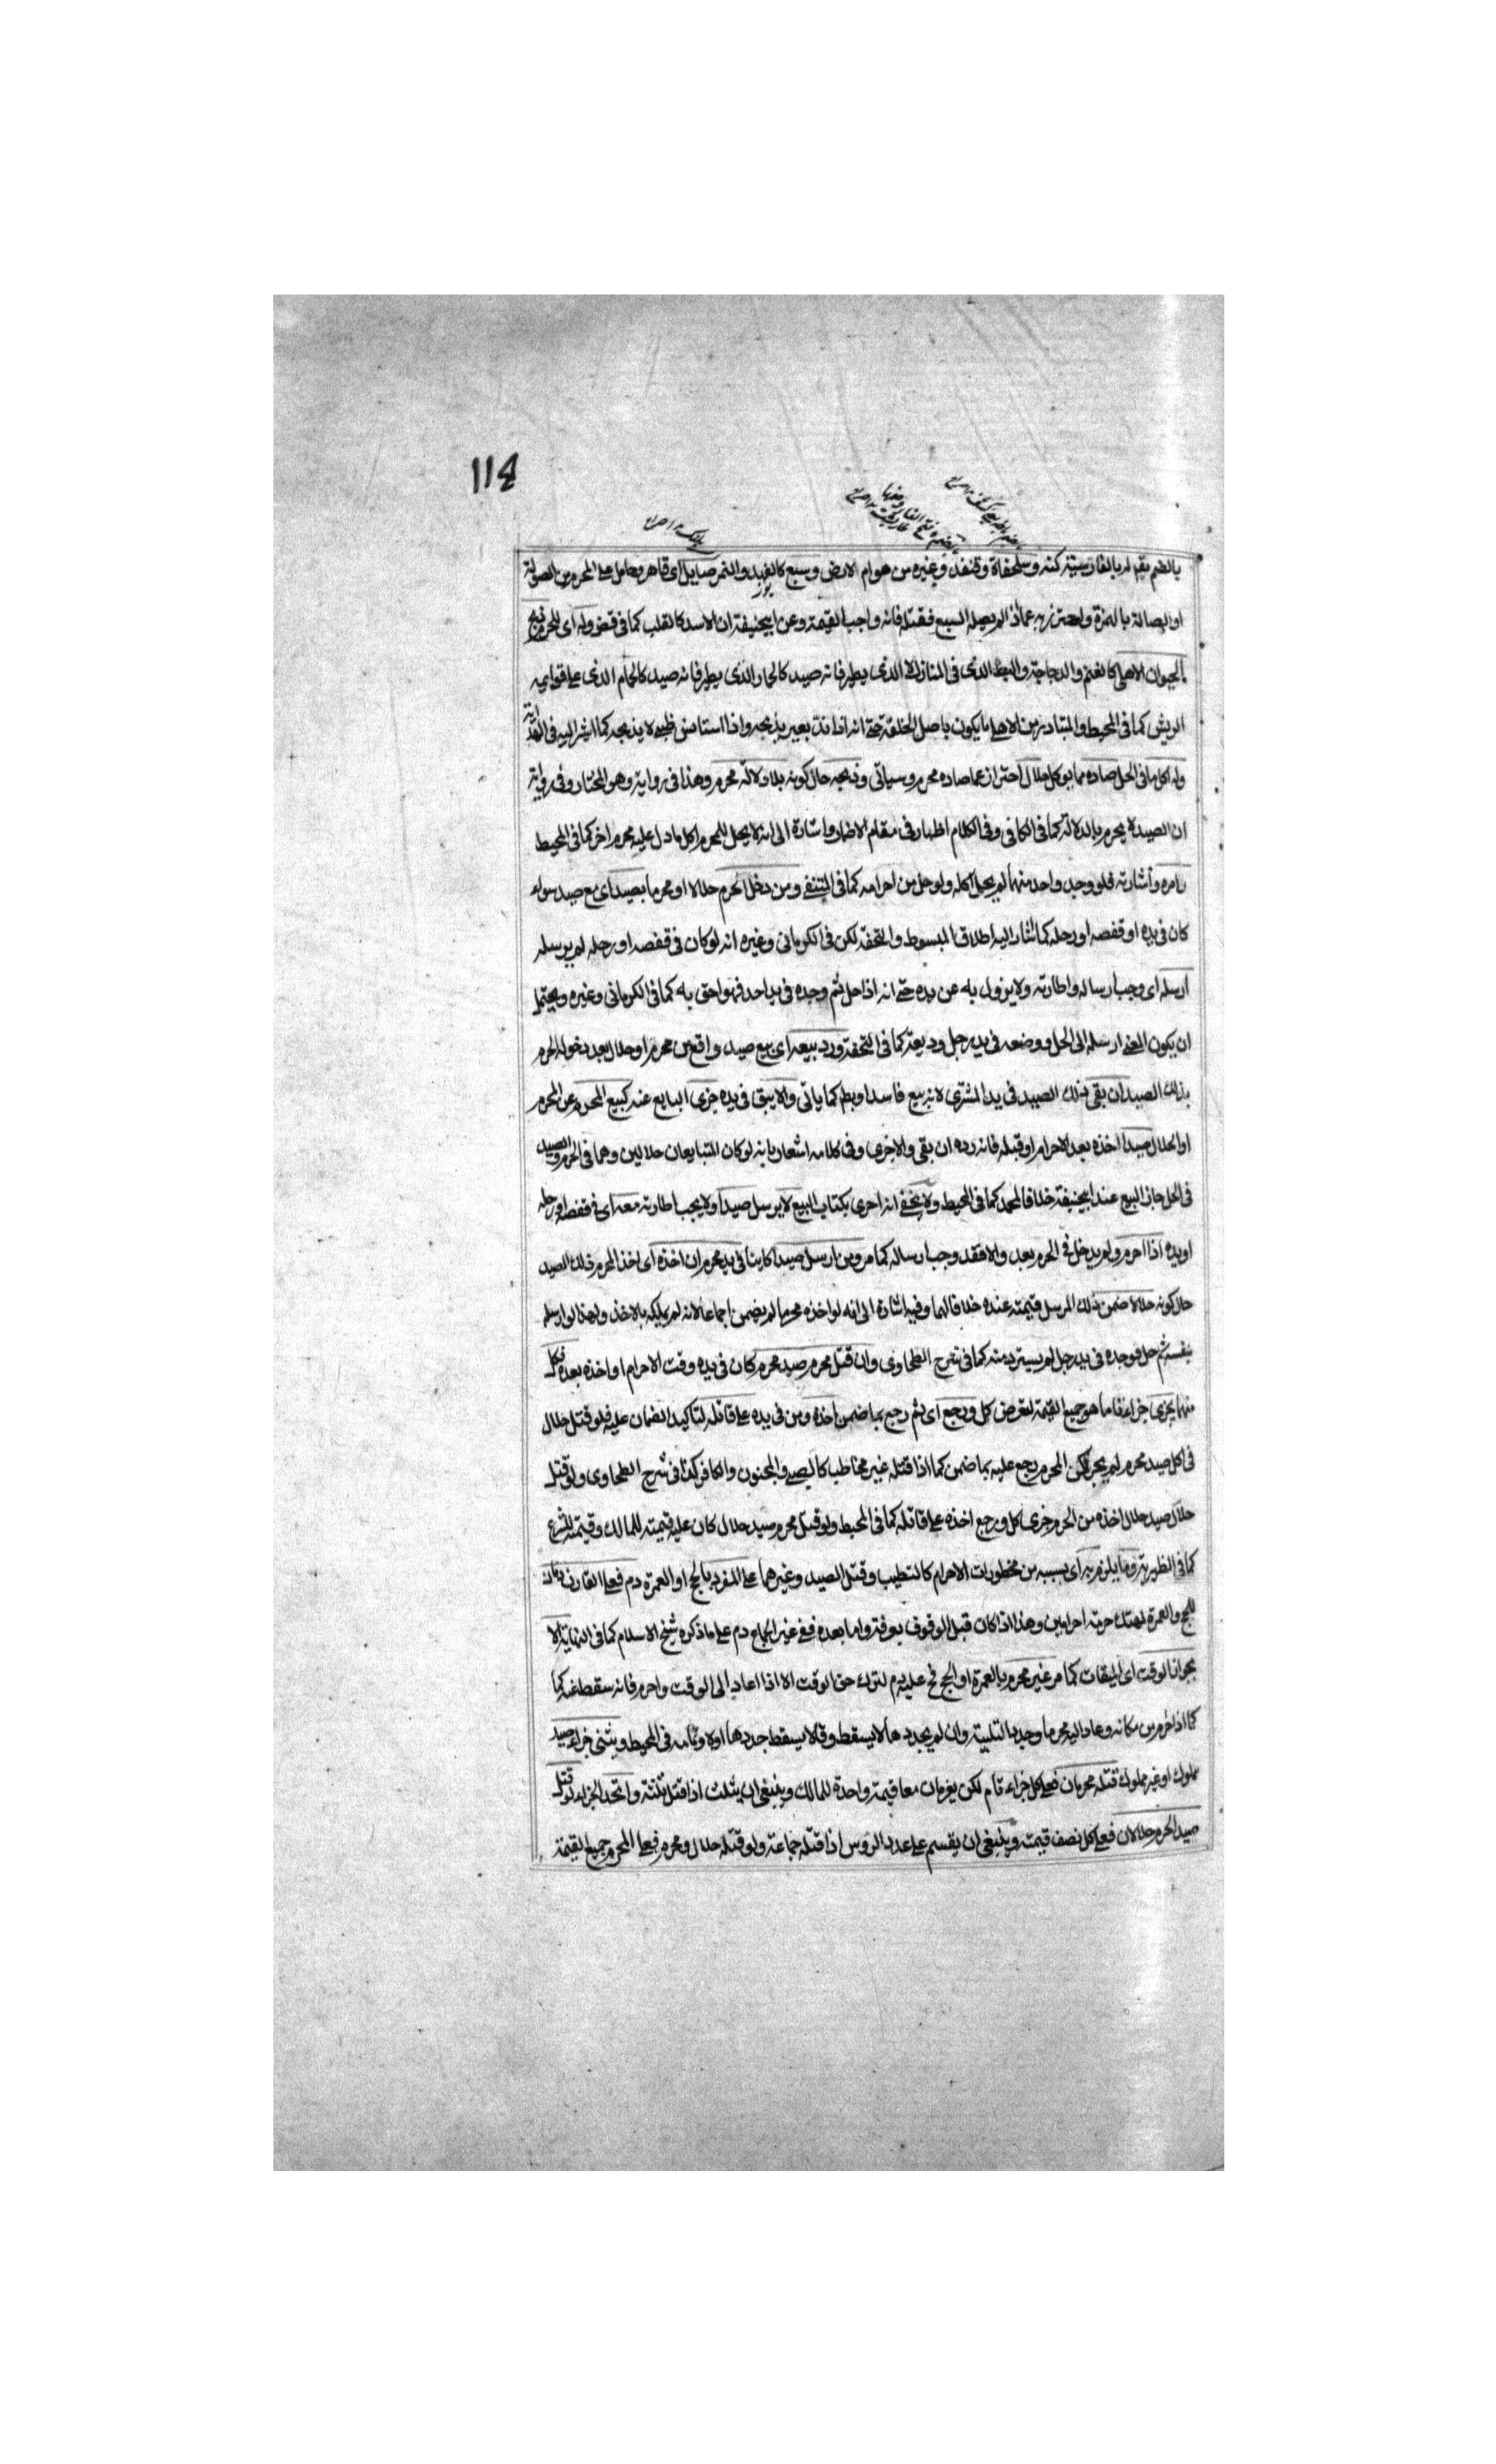 114
بالضم يقال له بالفارسية كنه وسلحفاة وقنفذ وغيره من هوام الارض وسبع كالفهد والنمر صايل اى قاهر وحامل على المحرم من الصولة
او الصالة بالهمزة واحترز به عما اذا لم يصل السبع فقتله فانه واجب القيمة وعن ابيحنيفة ان الاسد كالقلب كما فى قض وله اى للمحرم ذبح
الحيوان الاهلى كالغنم والدجاجة والبط الذى فى المنازل لا الذى يطير فانه صيد كالحمار الذى يطير فانه صيد كالحمام الذى على قوايمه
الريش كما فى المحيط والمتبادر من الاهلى ما يكون باصل الخلقة حتى انه اذا ندت بعير يذبحه واذا استانس ظبى لا يذبحه كما اشير اليه فى الهداية
وله اكل ما فى الحل صاده مما يوكل حلال احتراز عما صاده محرم وسياتى وذبحه حال كونه بلا دلالة محرم وهذا فى رواية وهو المختار وفى رواية
ان الصيد لا يحرم بالدلالة كما فى الكافى وفى الكلام اظهار فى مقام الاضمار واشارة الى انه لا يحل للمحرم اكل ما دل عليه محرم اخر كما فى المحيط
وامره واشارته فلو وجد واحد منهما لم يحل اكله ولو حل من احرامه كما فى النتف ومن دخل الحرم حلالا او محرما بصيد اى مع صيد سواء
كان فى يده او قفصه او رحله كما اشار اليه اطلاق المبسوط والتحفة لكن فى الكرمانى وغيره انه لو كان فى قفصه او رحله لم يرسله
ارسله اى وجب ارساله واطارته ولا يزول يه عن يده حتى انه اذا حل ثم وجده فى يد احد فهو احق به كما فى الكرمانى وغيره ويحتمل
ان يكون المعنى ارسله الى الحل ووضعه فى يد رجل وديعة كما فى التحفة ورد بيعه اى بيع صيد واقع من محرم او حلال بعد دخوله الحرم
بذلك الصيد ان بقى ذلك الصيد فى يد المشترى لانه بيع فاسد او بطل كما ياتى والا يبق فى يده جزى البايع عنه كبيع المحرم عن المحرم
او الحلال صيدا اخذه بعد الاحرام او قبله فانه رده ان بقى والا جزى وفى كلامه اشعار بانه لو كان المتبايعان حلالين وهما فى الحرم والصيد
فى الحل جاز البيع عند ابيحنيفة خلافا لمحمد كما فى المحيط ولا يخفى انه احرى بكتاب البيع لا يرسل صيدا ولا يجب اطارته معه اى فى قفصه او رحله
او يده اذا احرم ولم يدخل فى الحرم بعد والا فقد وجب ارساله كما مر ومن ارسل صيدا كاينا فى يد محرم ان اخذه اى اخذ المحرم ذلك الصيد
حال كونه حلالا ضمن ذلك المرسل قيمته عنده خلافا لهما وفيه اشارة الى انه لو اخذه محرما لم يضمن اجماعا لانه لم يملكه بالاخذ ولهذا لو ارسله
بنفسه ثم حل فوجده فى يد رجل لم يسترده منه كما فى شرح الطحاوى وان قتل محرم صيد محرم كان فى يده وقت الاحرام او اخذه بعده فكل
منهما يجزى جزاء تاما هو جميع القيمة لغرض كل ورجع اى ثم رجع بما ضمن اخذه ومن فى يده على قاتله لتاكيد الضمان عليه فلو قتل حلال
فى اكل صيد محرم لم يجز لكن المحرم رجع عليه بما ضمن كما اذا قتله غير مخاطب كالصبى والمجنون والكافر كذا فى شرح الطحاوى ولو قتل
حلال صيد حلال اخذه من الحرم جزى كل ورجع اخذه على قاتله كما فى المحيط ولو قتل محرم صيد حلال كان عليه قيمته للمالك وقيمته للشرع
كما فى الظهيرية وما يلزم به اى بسببه من محظورات الاحرام كالتطيب وقتل الصيد وغيرهما على المفرد بالحج او العمرة دم فعلى القارن دمان
للحج والعمرة لهتك حرمة احرامين وهذا اذا كان قبل الوقوف بعرفة واما بعده ففى غير الجماع دم على ما ذكره شيخ الاسلام كما فى النهاية الا
بجواز الوقت اى الميقات كما مر غير محرم بالعمرة او الحج فح عليه دم لترك حق الوقت الا اذا اعاد الى الوقت واحرم فانه سقط عنه كما
كما اذا احرم من مكانه وعاد اليه محرما وجدد التلبية وان لم يجددها لا يسقط وقالا يسقط جددها اولا وتمامه فى المحيط ويثنى جزاء صيد
مملوك او غير مملوك قتله محرمان فعلى كل جزاء تام لكن يغرمان معا قيمة واحدة للمالك وينبغى ان يثلث اذا قتل ثلثة واتحد الجزاء لو قتل
صيد الحرم حلالان فعلى كل نصف قيمته وينبغى ان يقسم على عدد الرؤس اذا قتله جماعة ولو قتله حلال ومحرم فعلى المحرم جميع القيمة